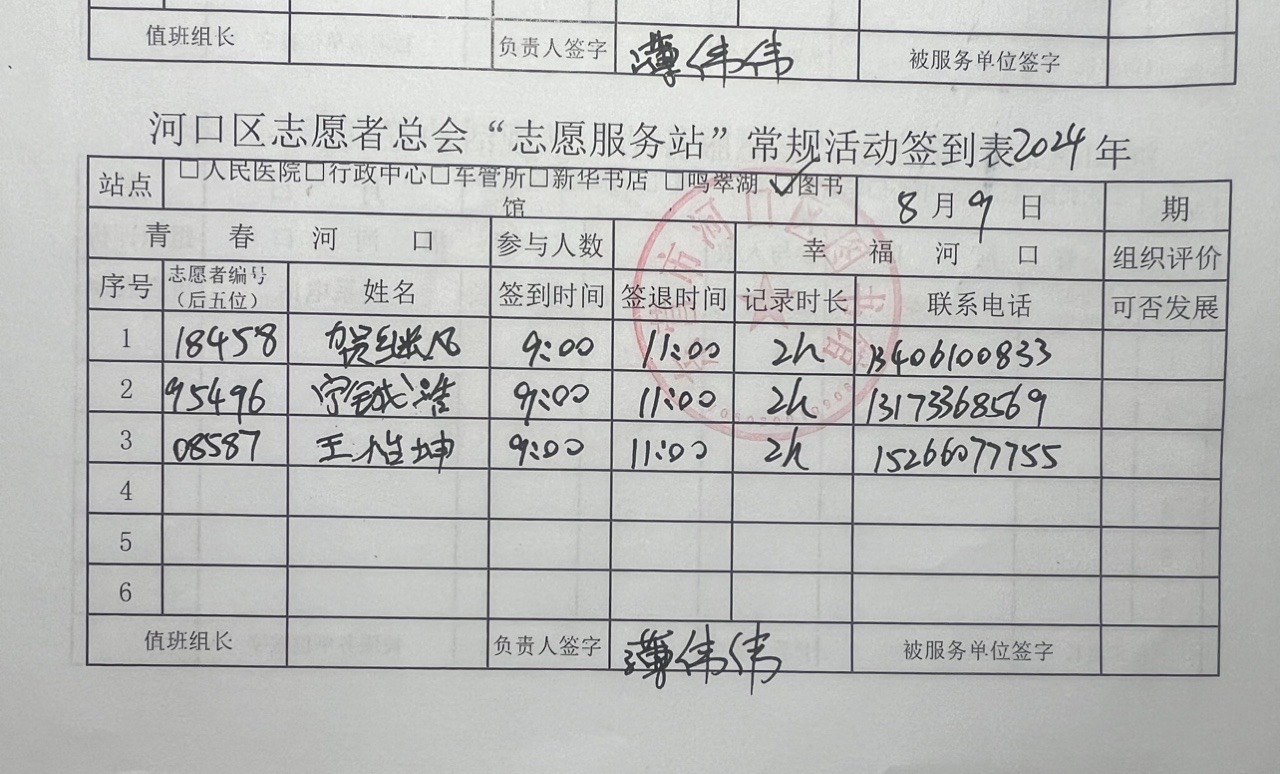 值班组长 负责人签字 薄伟伟 被服务单位签字
河口区志愿者总会“志愿服务站”常规活动签到表2024年
站点 □人民医院□行政中心□车管所□新华书店 □鸣翠湖 ☑图书馆 8月9日 期
青春河口 参与人数 幸福河口 组织评价
序号 志愿者编号（后五位） 姓名 签到时间 签退时间 记录时长 联系电话 可否发展
1 18458 9:00 11:00 2h 13406100833
2 95496 9:00 11:00 2h 13173368569
3 08587 王 坤 9:00 11:00 2h 15266077755
4
5
6
值班组长 负责人签字 薄伟伟 被服务单位签字